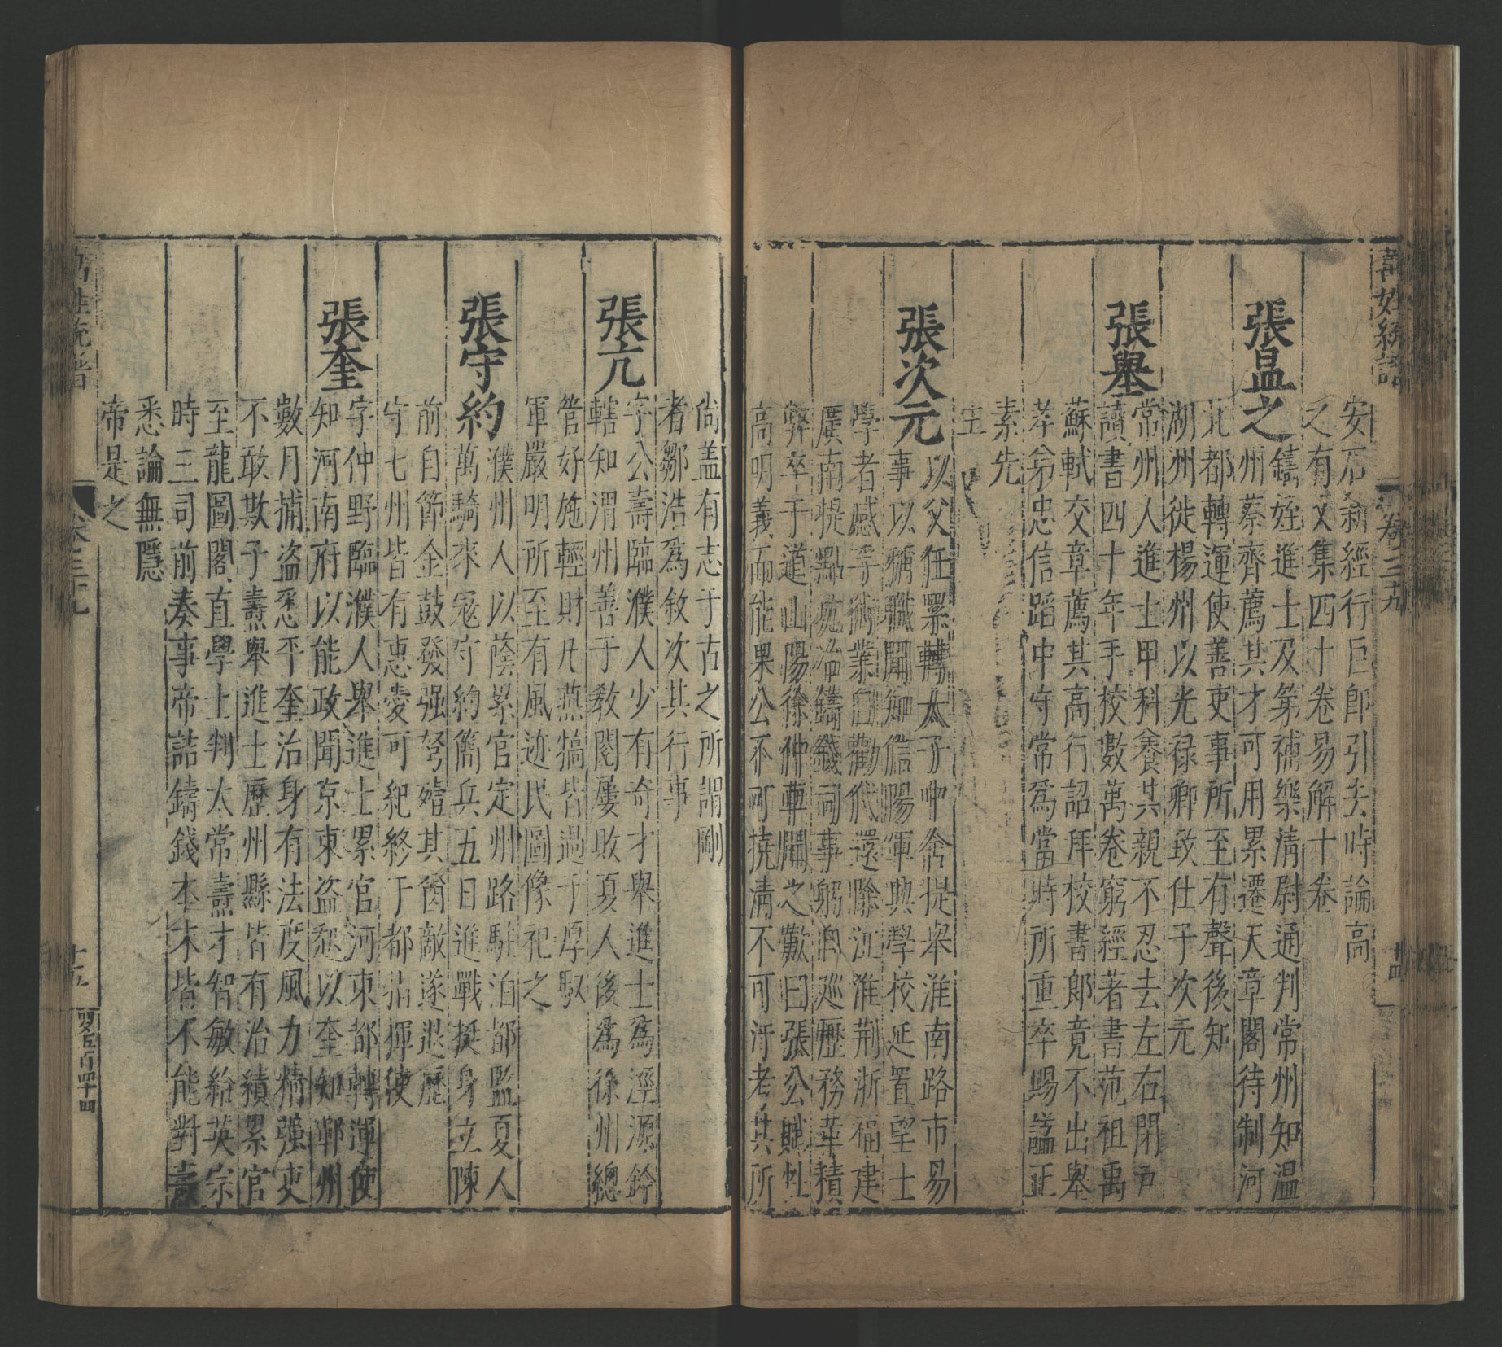 萬姓統譜
卷三十九
十四
安石新經行巨郎引去時論高
之有文集四十卷易解十卷
張昷之
鑄姪進士及第補樂清尉通判常州知溫
州蔡齊薦其才可用累遷天章閣待制河
北都轉運使善吏事所至有聲後知
湖州徙楊州以光祿卿致仕子次元
張舉
常州人進士甲科養其親不忍去左右閉戶
讀書四十年手校數萬卷窮經著書范祖禹
蘇軾交章薦其高行詔拜校書郎竟不出舉
孝弟忠信蹈中守常為當時所重卒賜諡正
素先
生
張次元
以父任累轉太子中舍提舉淮南路市易
事以循職聞知信陽軍興學校延置望士
學者感孚術業回勸代還除江淮荆浙福建
廣南提點坑冶鑄錢司事躬自巡歷務革積
弊卒于道山陽徐仲車聞之歎曰張公賦性
高明義而能果公不可撓清不可汙考其所
尚蓋有志于古之所謂剛
者鄒浩為敘次其行事
張亢
字公壽臨濮人少有奇才舉進士為涇源鈐
轄知渭州善于教閱屢敗夏人後為徐州總
管好施輕財凡燕犒皆過于厚馭
軍嚴明所至有風迹民圖像祀之
張守約
濮州人以蔭累官定州路駐泊都監夏人
萬騎來寇守約簡兵五百進戰挺身立陳
前自節金鼓發强弩殪其酋敵遂退歷
守七州皆有惠愛可紀終于都指揮使
張奎
字仲野臨濮人舉進士累官河東都轉運使
知河南府以能政聞京東盜起以奎知鄆州
數月捕盜悉平奎治身有法度風力精强吏
不敢欺子燾舉進士歷州縣皆有治績累官
至龍圖閣直學士判太常燾才智敏給英宗
時三司前奏事帝詰鑄錢本末皆不能對燾
悉論無隱
帝是之
萬姓統譜
卷三十九
十五
四百四十四